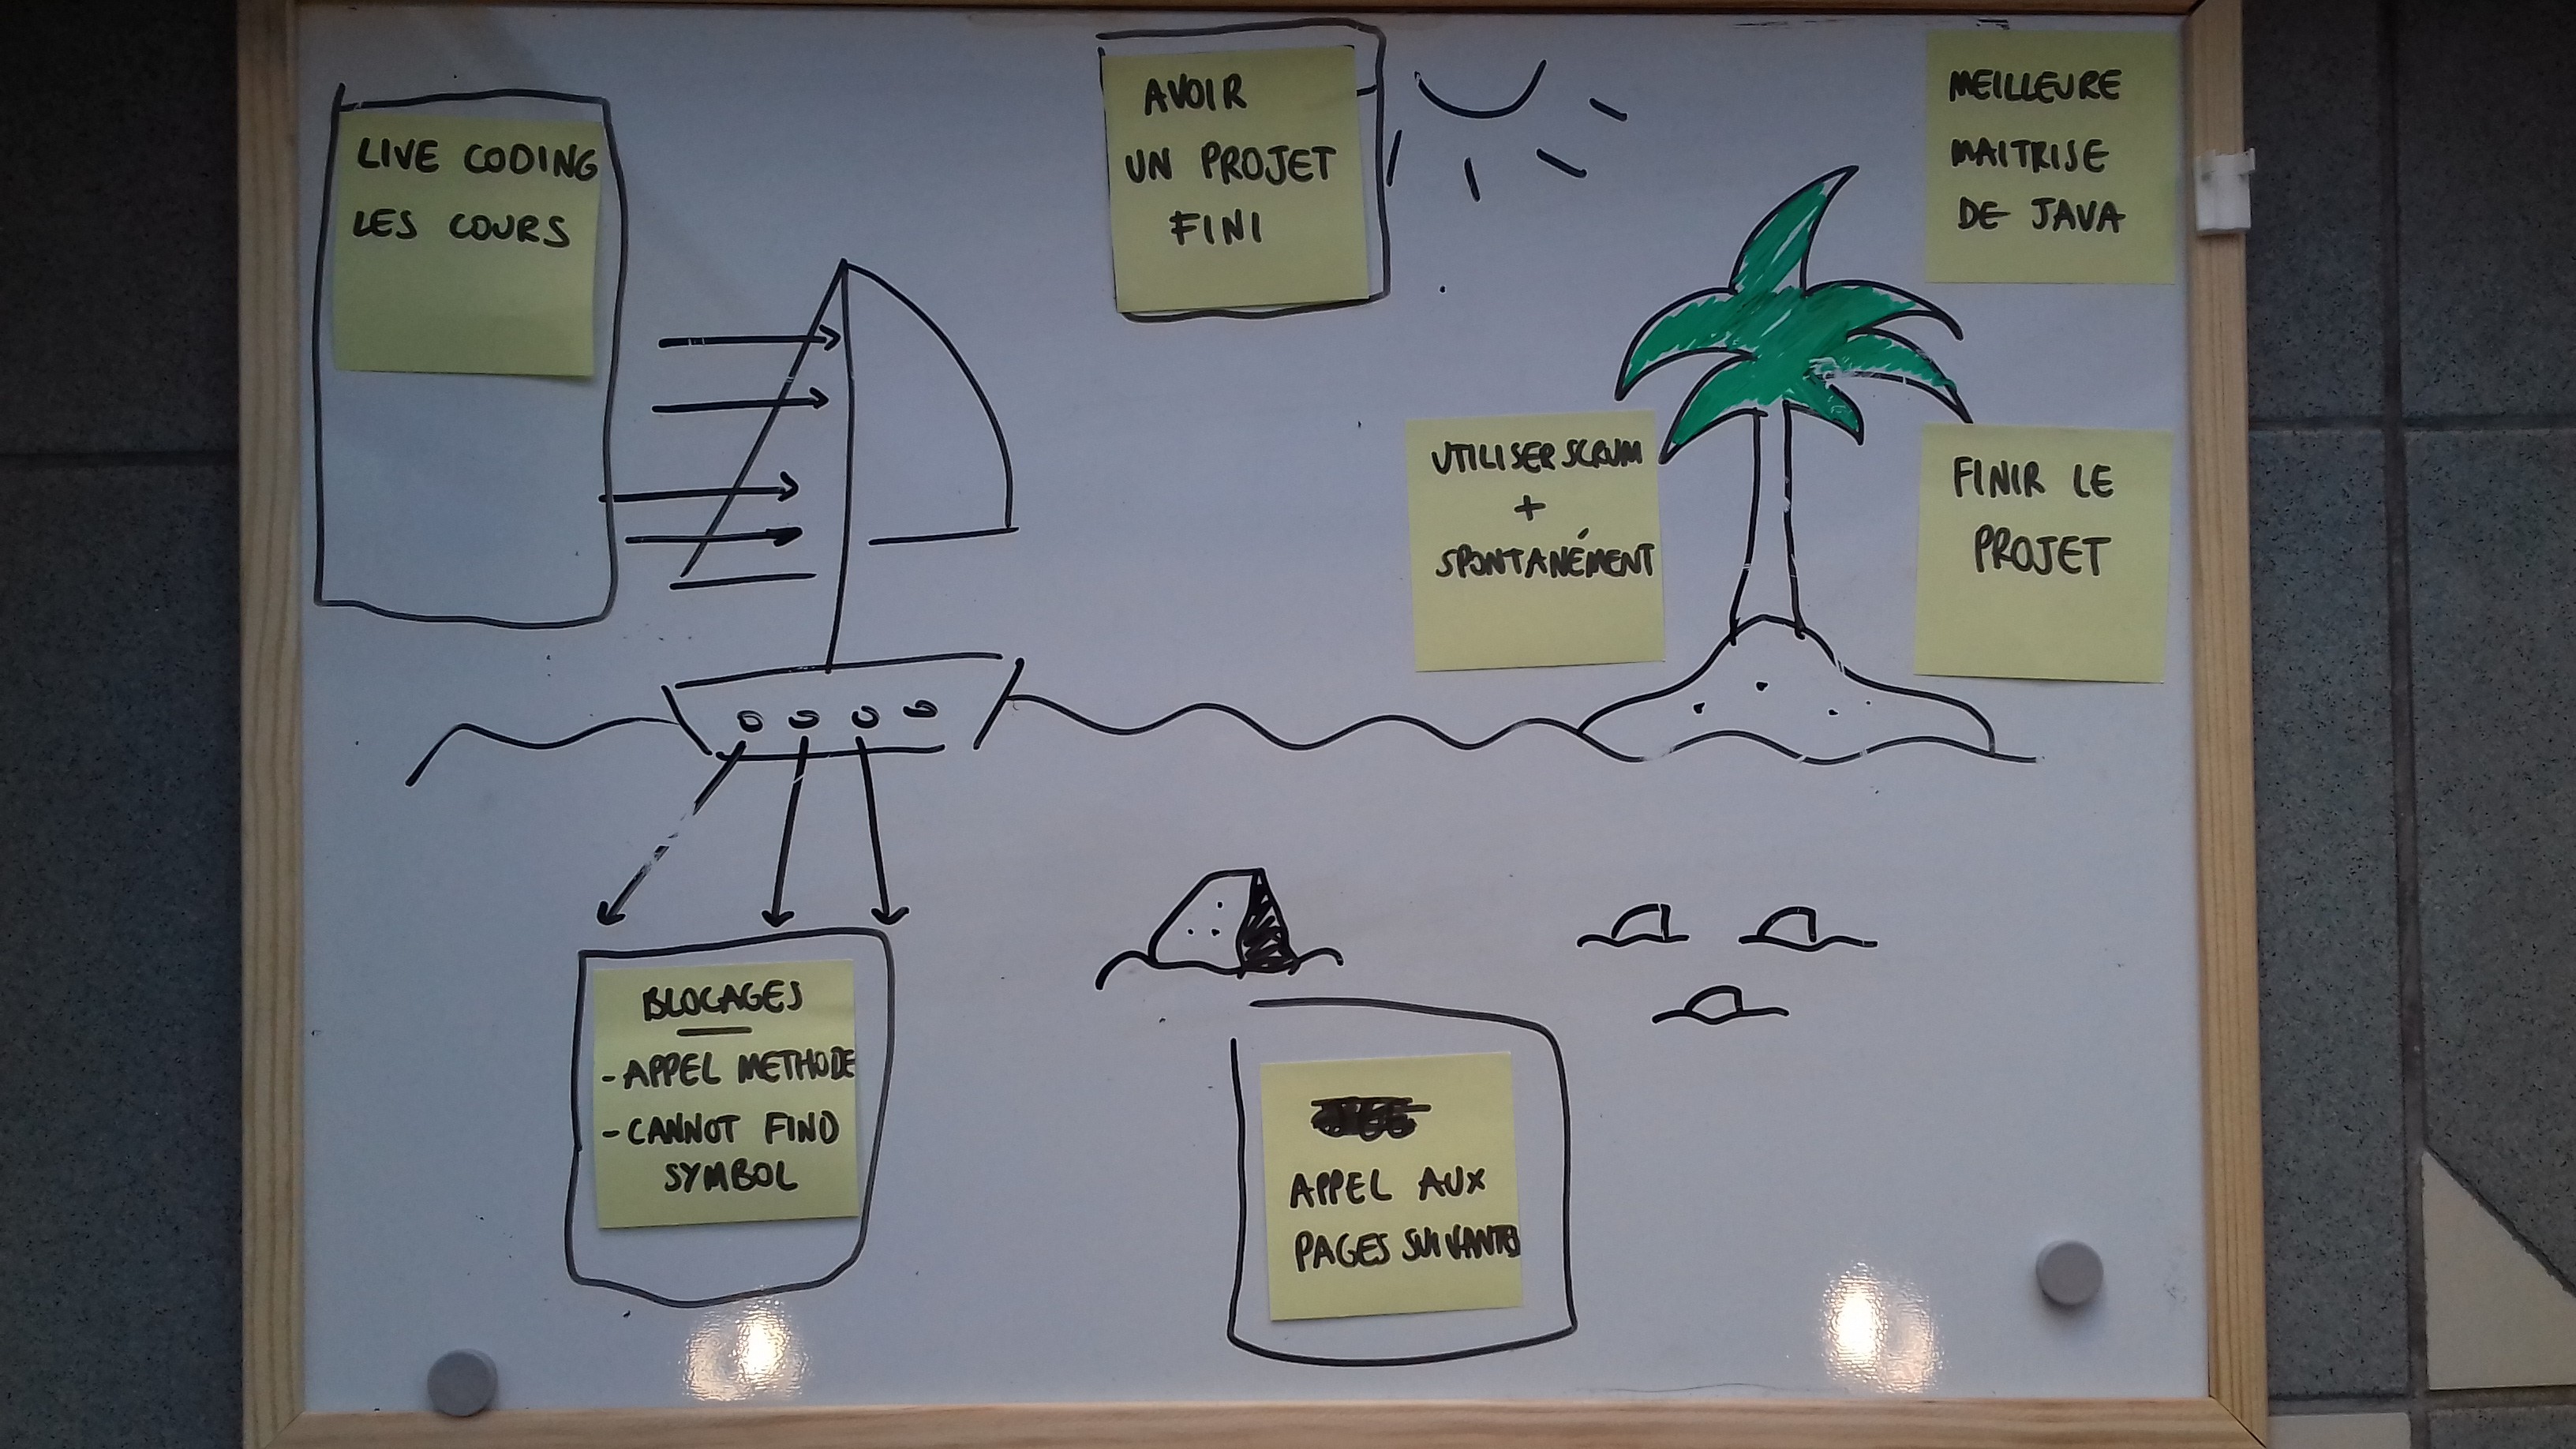 LIVE CODING
LES COURS
AVOIR
UN PROJET
FINI
MEILLEURE
MAITRISE
DE JAVA
UTILISER SCRUM
+
SPONTANÉMENT
FINIR LE
PROJET
BLOCAGES
- APPEL METHODE
- CANNOT FIND
SYMBOL
APPEL AUX
PAGES SUIVANTES